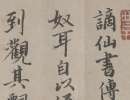 謫仙書傳
奴耳自以
到觀其